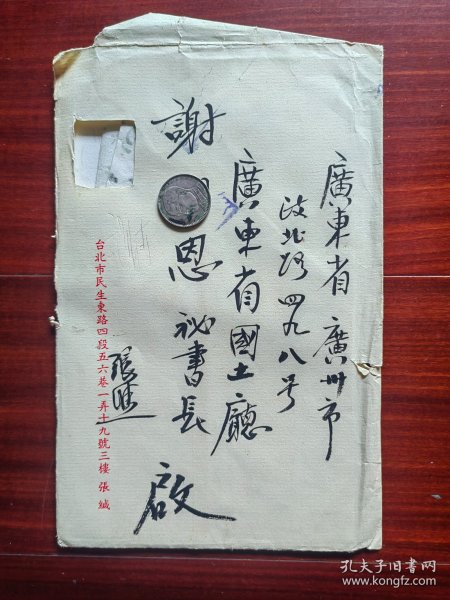 廣東省廣州市
政北路四九八号
廣東省國土廳
謝恩祕書長 啟
台北市民生東路四段五六巷一弄十九號三樓 張緘
孔夫子旧书网
www.kongfz.com